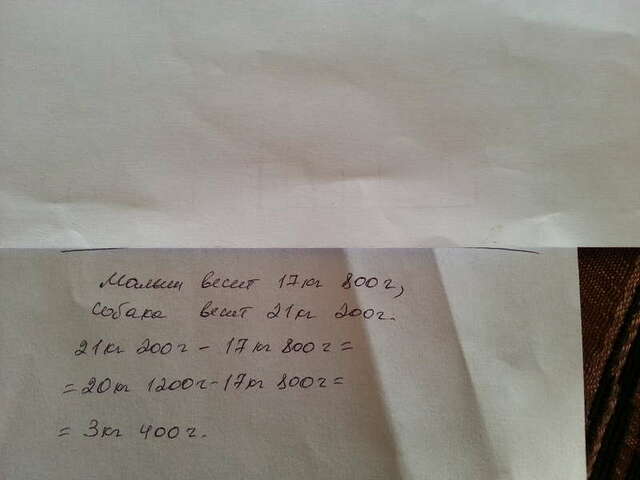 Малыш весит 17кг 800г,
собака весит 21кг 200г.
21кг 200г - 17кг 800г =
= 20кг 1200г - 17кг 800г =
= 3кг 400г.